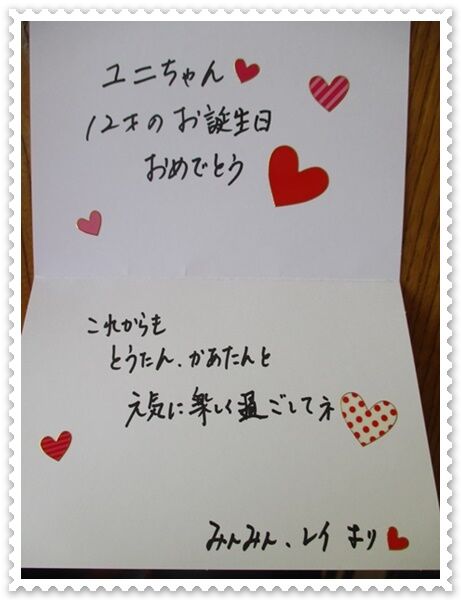 ユニちゃん
12才のお誕生日
おめでとう
これからも
とうたん、かあたんと
元気に楽しく過ごしてネ
みんみん、レイ より